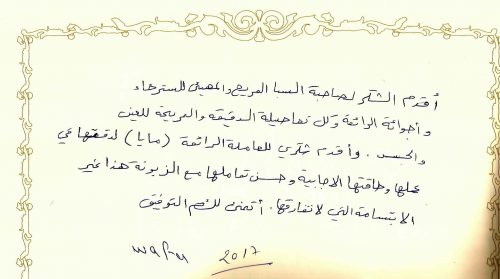 أقدم الشكر لصاحبة السبا المريح والمهيئ للاسترخاء
وأجوائة الرائعة وكل تفاصيلة الدقيقة والمريحة للعين
والجسد . وأقدم شكري للعاملة الرائعة (مايا) لدقتها في
عملها وطاقتها الاجابية وحسن تعاملها مع الزبونة هذا غير
الابتسامة التي لا تفارقها . أتمنى لكم التوفيق
wafa 2017